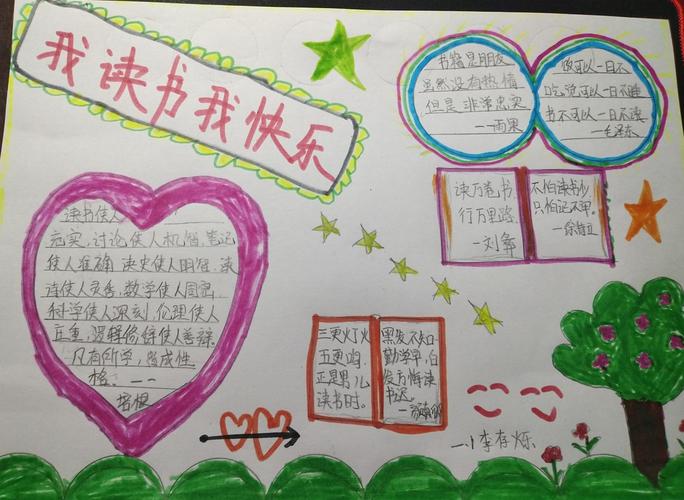 我读书我快乐
书籍是朋友
虽然没有热情
但是非常忠实
——雨果
你可以一日不
吃,可以一日不睡
书不可以一日不读
—毛泽东
读万卷书
行万里路
—刘彝
不怕读书少
只怕记不牢。
—徐特立
读书使人
充实,讨论使人机智,笔记
使人准确 读史使人明智,读
诗使人灵秀,数学使人周密
科学使人深刻 伦理使人
庄重,逻辑修辞使人善辩
凡有所学,皆成性
格。——
培根
三更灯火
五更鸡
正是男儿
读书时。
黑发不知
勤学早,白
首方悔读
书迟。
一.1李存烁